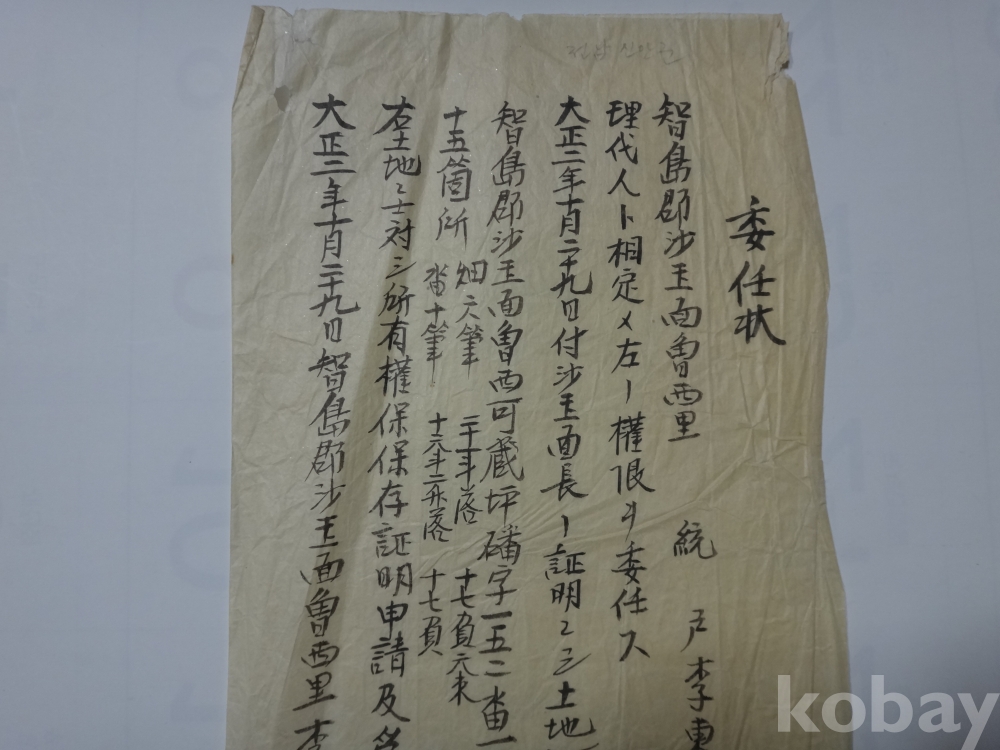 委任状
智島郡沙玉面魯西里 統 戸李東
理代人ト相定メ左ノ權限ヲ委任ス
大正二年十月二十九日付沙玉面長ノ証明ニ三土地
智島郡沙玉面魯西可蔵坪磻字一五二畨一
十五箇所 畑六筆 二十一斗落 十七負六束
畓十筆 十六斗二升落 十七負
右土地ニ対シ所有權保保存証明申請及
大正二年十月二十九日智島郡沙玉面魯西里李
전남 신안군
kobay